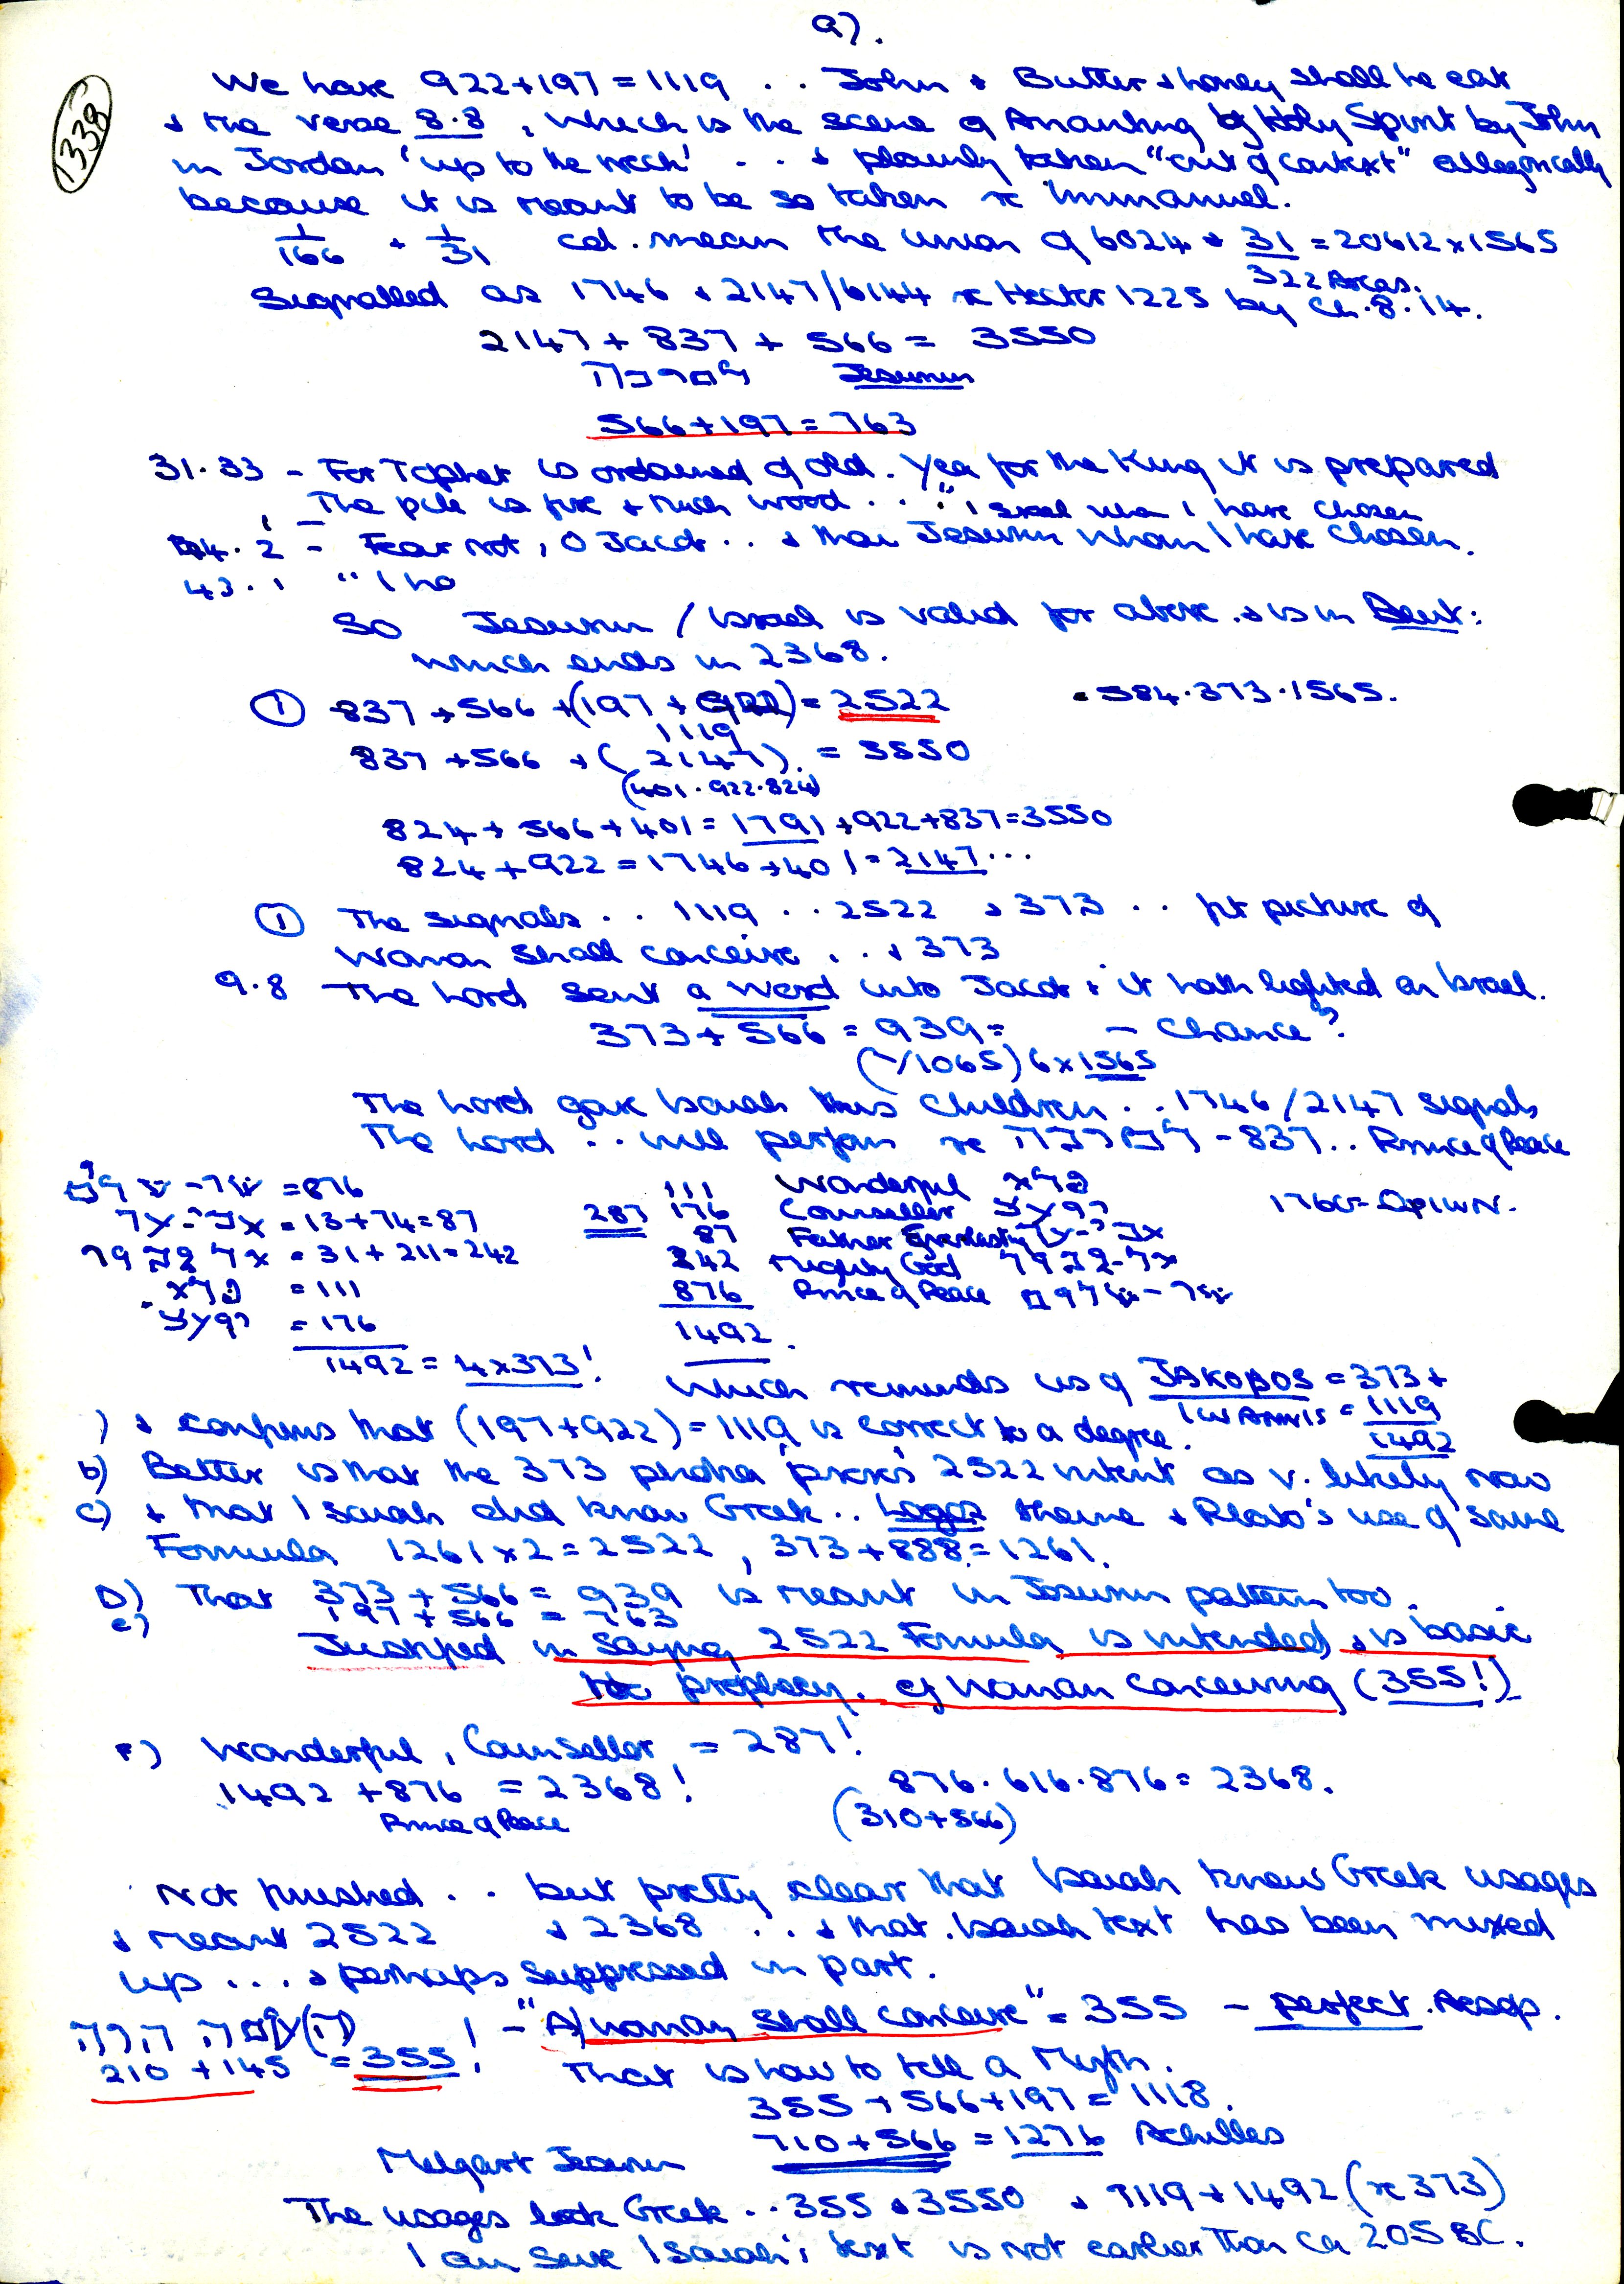 a).
1338
We have 922+197=1119 .. John + Butter + honey shall he eat
+ the verse 8.8, which is the scene of Anointing by Holy Spirit by John
in Jordan 'up to the neck' ... + plainly taken "out of context" allegorically
because it is meant to be so taken re Immanuel.
1/166 + 1/31 cd. mean the union of 6024 + 31 = 20612 x 1565
322 Arcas.
Signalled as 1746 + 2147/6144 re Hester 1225 by Ch.8.14.
2147 + 837 + 566 = 3550
Jesurun
566+197=763
31.33 - For Tophet is ordained of old. Yea for the King it is prepared
The pile is fire + much wood ...
44.2 - Fear not, O Jacob .. + thou Jesurun whom I have chosen.
43.1 "
So Jesurun / Israel is valid for above + is in Deut:
which ends in 2368.
① 837 + 566 + (197 + 922) = 2522 = 584.373.1565.
1119
837 + 566 + (2147). = 3550
(401.922.824)
824 + 566 + 401 = 1791 + 922 + 837 = 3550
824 + 922 = 1746 + 401 = 2147 ...
① The signals .. 1119 .. 2522 + 373 .. fit picture of
Woman shall conceive ... + 373
9.8 The Lord sent a word into Jacob + it hath lighted on Israel.
373 + 566 = 939 = - Chance?
(~/1065) 6 x 1565
The Lord gave Isaiah this children .. 1746/2147 signals
The Lord .. will perform re - 837 .. Prince of Peace
= 876
= 13+74=87
= 31+211=242
= 111
= 176
1492 = 4x373!
111 Wonderful
287 176 Counsellor
87 Father Everlasting
242 Mighty God
876 Prince of Peace
1492
1760=
Which reminds us of JAKOBOS = 373 +
IWANNIS = 1119
1492
) + confirms that (197+922)=1119 is correct to a degree.
b) Better is that the 373 'proves' 2522 intent as v. likely now
c) + that Isaiah did know Greek .. Logos theme + Plato's use of same
Formula 1261x2=2522, 373+888=1261.
D) That 373 + 566 = 939 is meant in Jesurun pattern too.
e) 197 + 566 = 763
Justified in saying 2522 Formula is intended + is basic
to prophecy. of Woman conceiving (355!)
F) Wonderful, Counsellor = 287!
1492 + 876 = 2368! 876.616.876 = 2368.
Prince of Peace (310+566)
Not finished .. but pretty clear that Isaiah knew Greek usages
+ meant 2522 + 2368 ... + that Isaiah text has been mixed
up ... + perhaps suppressed in part.
העלמה הרה ! - "A woman shall conceive" = 355 - perfect Aesop.
210 + 145 = 355! That is how to tell a Myth.
355 + 566 + 197 = 1118.
710 + 566 = 1276 Achilles
Melqart Jesurun
The usages look Greek .. 355 + 3550 + 1119 + 1492 (re 373)
I am sure Isaiah's text is not earlier than ca 205 BC.